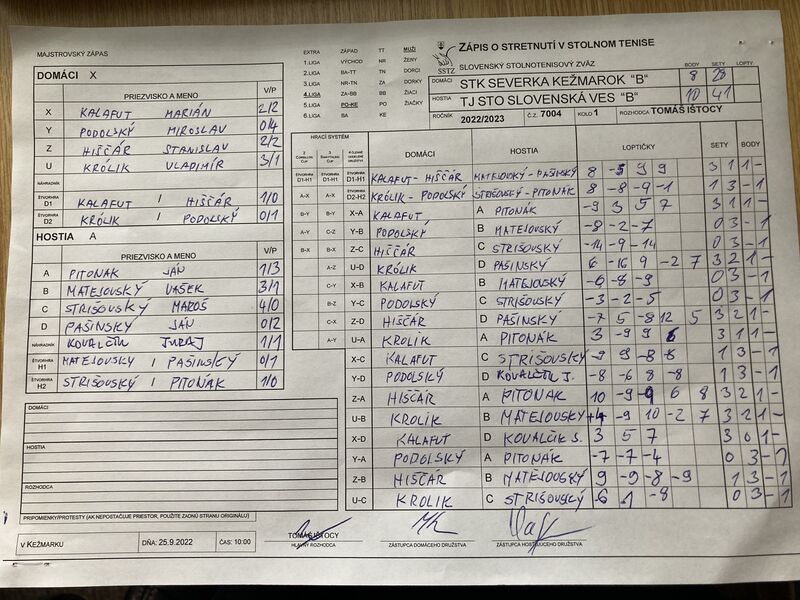 MAJSTROVSKÝ ZÁPAS
DOMÁCI X
PRIEZVISKO A MENO V/P
X KALAFUT MARIÁN 2/2
Y PODOLSKÝ MIROSLAV 0/4
Z HIŠČÁR STANISLAV 2/2
U KRÓLIK VLADIMÍR 3/1
NÁHRADNÍK
ŠTVORHRA D1 KALAFUT / HIŠČÁR 1/0
ŠTVORHRA D2 KRÓLIK / PODOLSKÝ 0/1
HOSTIA A
PRIEZVISKO A MENO V/P
A PITONAK JÁN 1/3
B MATEJOVSKÝ VAŠEK 3/1
C STRIŠOVSKÝ MAROŠ 4/0
D PAŠINSKÝ JÁN 0/2
NÁHRADNÍK KOVALČÍK JURAJ 1/1
ŠTVORHRA H1 MATEJOVSKY / PAŠINSKÝ 0/1
ŠTVORHRA H2 STRIŠOVSKÝ / PITOŇAK 1/0
DOMÁCI
HOSTIA
ROZHODCA
PRIPOMIENKY/PROTESTY (AK NEPOSTAČUJE PRIESTOR, POUŽITE ZADNÚ STRANU ORIGINÁLU)
V KEŽMARKU DŇA: 25.9.2022 ČAS: 10:00
EXTRA ZÁPAD TT MUŽI
1.LIGA VÝCHOD NR ŽENY
2.LIGA BA-TT TN DORCI
3.LIGA NR-TN ZA DORKY
4.LIGA ZA-BB BB ŽIACI
5.LIGA PO-KE PO ŽIAČKY
6.LIGA BA KE
SSTZ
ZÁPIS O STRETNUTÍ V STOLNOM TENISE
SLOVENSKÝ STOLNOTENISOVÝ ZVÄZ BODY SETY LOPTY
DOMÁCI STK SEVERKA KEŽMAROK "B" 8 28
HOSTIA TJ STO SLOVENSKÁ VES "B" 10 41
ROČNÍK 2022/2023 Č.Z. 7004 KOLO 1 ROZHODCA TOMÁŠ IŠTOCY
HRACÍ SYSTÉM
DOMÁCI HOSTIA LOPTIČKY SETY BODY
ŠTVORHRA D1-H1 ŠTVORHRA D1-H1 ŠTVORHRA D1-H1 KALAFUT - HIŠČÁR MATEJOVSKÝ - PAŠINSKÝ 8 -5 9 9 3 1 1 -
A-X A-X ŠTVORHRA D2-H2 KRÓLIK - PODOLSKÝ STRIŠOVSKÝ - PITOŇAK 8 -8 -9 -1 1 3 - 1
B-Y B-Y X-A KALAFUT A PITONÁK -9 3 5 7 3 1 1 -
A-Y C-Z Y-B PODOLSKÝ B MATEJOUSKÝ -8 -2 -7 0 3 - 1
B-X B-X Z-C HIŠČÁR C STRIŠOUSKÝ -14 -9 -14 0 3 - 1
A-Z U-D KRÓLIK D PAŠINSKÝ 6 -16 9 -2 7 3 2 1 -
C-Y X-B KALAFUT B MATEJOVSKÝ -6 -8 -9 0 3 - 1
B-Z Y-C PODOLSKÝ C STRIŠOVSKÝ -3 -2 -5 0 3 - 1
C-X Z-D HIŠČÁR D PAŠINSKÝ -7 5 -8 12 5 3 2 1 -
A-Y U-A KROLIK A PITONÁK 3 -9 9 6 3 1 1 -
X-C KALAFUT C STRIŠOUSKÝ -9 9 -8 -8 1 3 - 1
Y-D PODOLSKÝ D KOVALČÍK J. -8 -6 8 -8 1 3 - 1
Z-A HIŠČÁR A PITOŇAK 10 -9 -9 6 8 3 2 1 -
U-B KROLIK B MATEJOUSKÝ +4 -9 10 -2 7 3 2 1 -
X-D KALAFUT D KOVALČIK J. 3 5 7 3 0 1 -
Y-A PODOLSKÝ A PITOŇÁK -7 -7 -4 0 3 - 1
Z-B HIŠČÁR B MATEJOUSKÝ 9 -9 -8 -9 1 3 - 1
U-C KROLIK C STRIŠOVSKÝ -6 1 -8 0 3 - 1
TOMÁŠ IŠTOCY
HLAVNÝ ROZHODCA
ZÁSTUPCA DOMÁCEHO DRUŽSTVA
ZÁSTUPCA HOSŤUJÚCEHO DRUŽSTVA